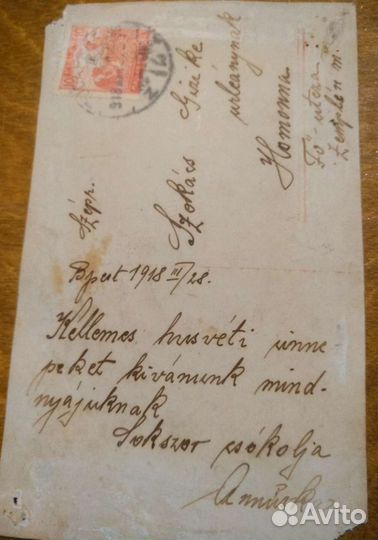 Szépr.
Szokács Gizike
urleánynak
Homonna
Fő-utcza
Zemplén m.
Bpest 1918 III/28.
Kellemes husvéti ünne-
peket kivánunk mind-
nyájuknak
Sokszor csókolja
Annuska
Avito